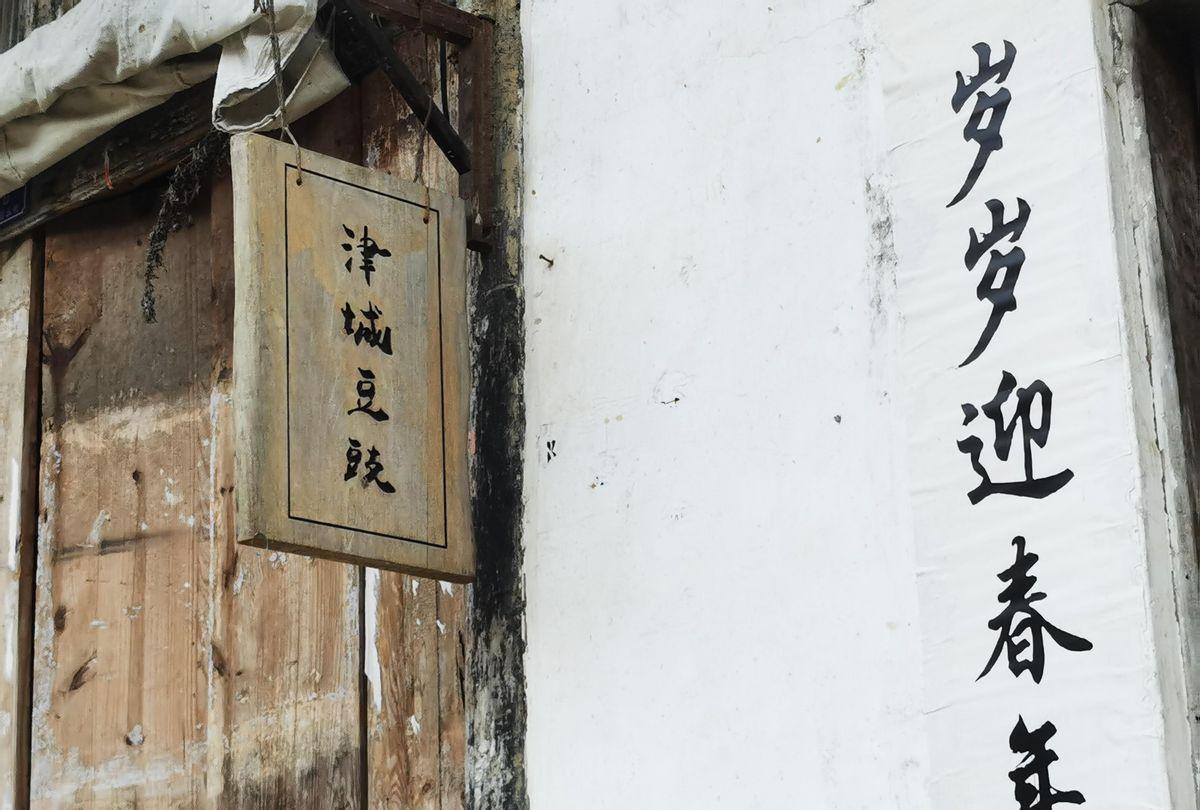 津城豆豉
岁岁迎春年